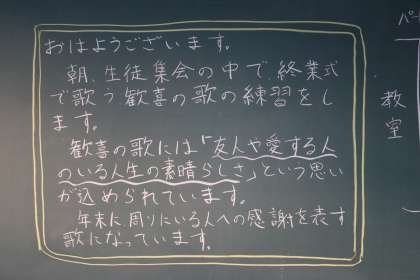 おはようございます。
朝、生徒集会の中で、終業式
で歌う歓喜の歌の練習をし
ます。
歓喜の歌には「友人や愛する人
のいる人生の素晴らしさ」という思い
が込められています。
年末に、周りにいる人への感謝を表す
歌になっています。
教室